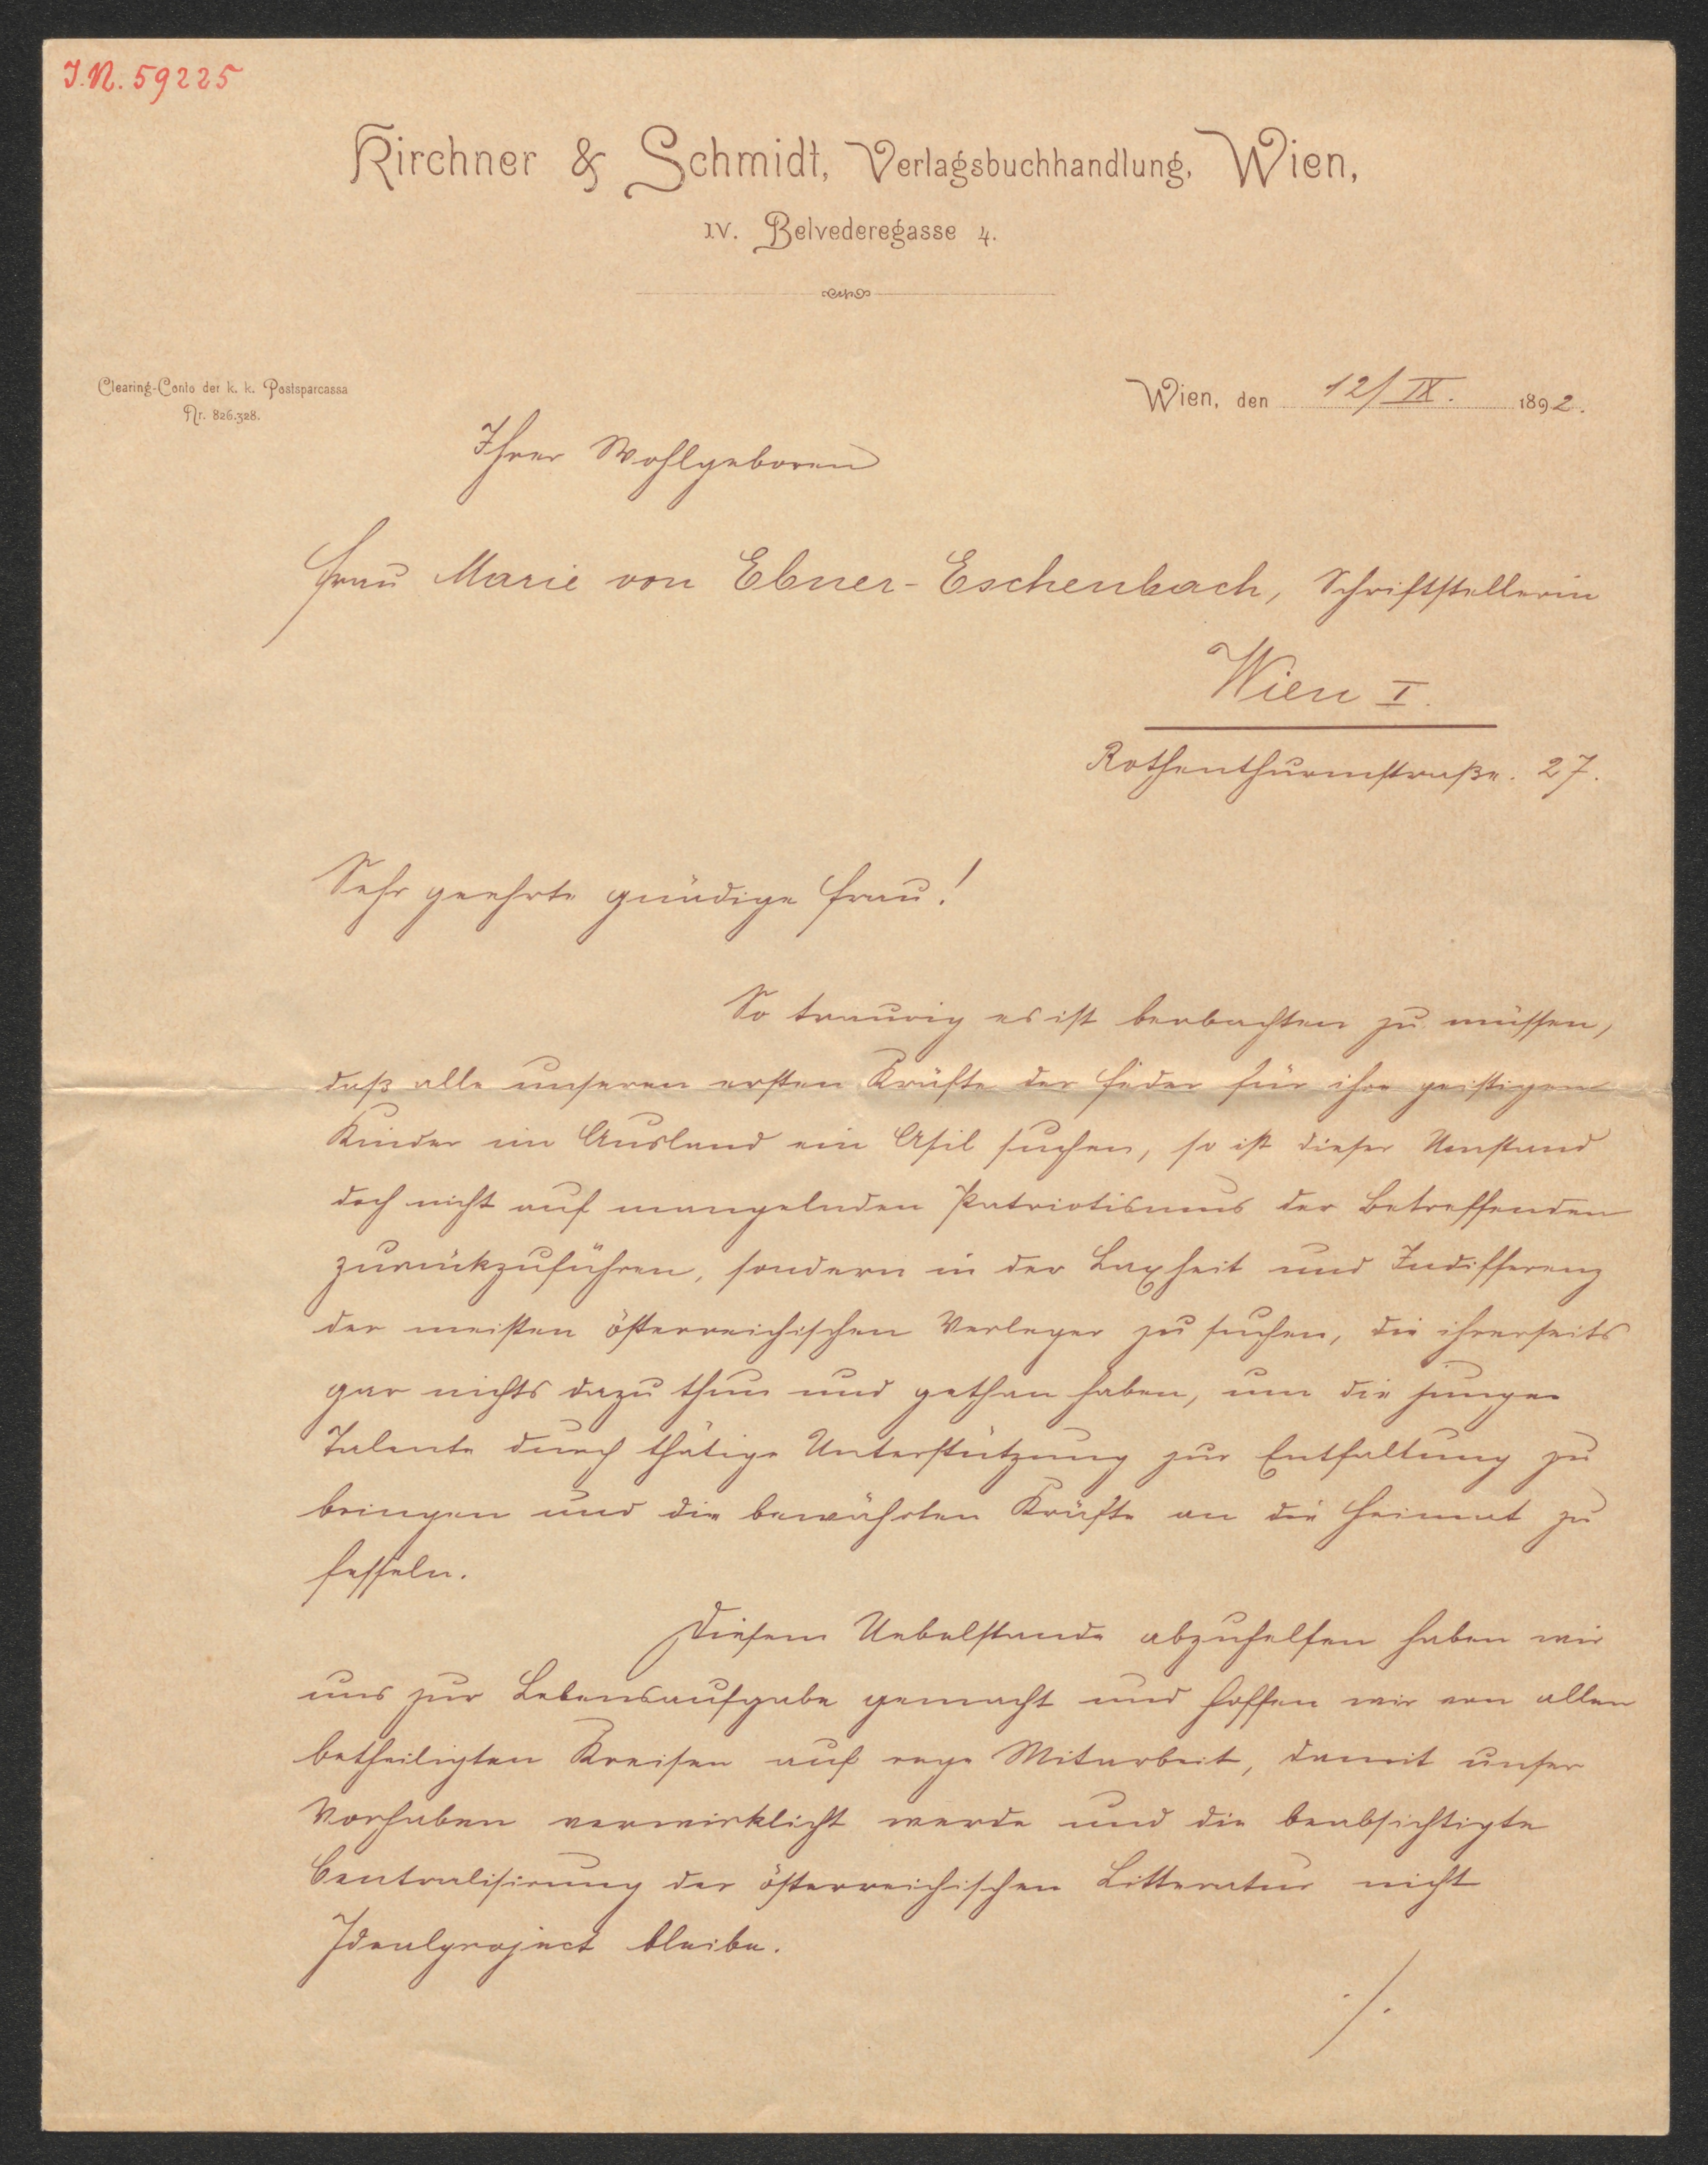 I.N. 59225
Kirchner & Schmidt, Verlagsbuchhandlung, Wien,
IV. Belvederegasse 4.
Clearing-Conto der k. k. Postsparcassa
Nr. 826.328.
Wien, den 12/IX. 1892.
Ihrer Wohlgeboren
Frau Marie von Ebner-Eschenbach, Schriftstellerin
Wien I.
Rothenthurmstraße. 27.
Sehr geehrte gnädige Frau!
So traurig es ist beobachten zu müssen,
daß alle unseren ersten Kräfte der Feder für ihre geistigen
Kinder im Ausland ein Asil suchen, so ist dieser Umstand
doch nicht auf mangelnden Patriotismus der Betreffenden
zurückzuführen, sondern in der Laxheit und Indifferenz
der meisten österreichischen Verleger zu suchen, die ihrerseits
gar nichts dazu thun und gethan haben, um die jungen
Talente durch thätige Unterstützung zur Entfaltung zu
bringen und die bewährten Kräfte an die Heimat zu
fesseln.
Diesem Uebelstande abzuhelfen haben wir
uns zur Lebensaufgabe gemacht und hoffen wir von allen
betheiligten Kreisen auf rege Mitarbeit, damit unser
Vorhaben verwirklicht werde und die beabsichtigte
Centralisirung der österreichischen Litteratur nicht
Idealproject bleibe.
./.